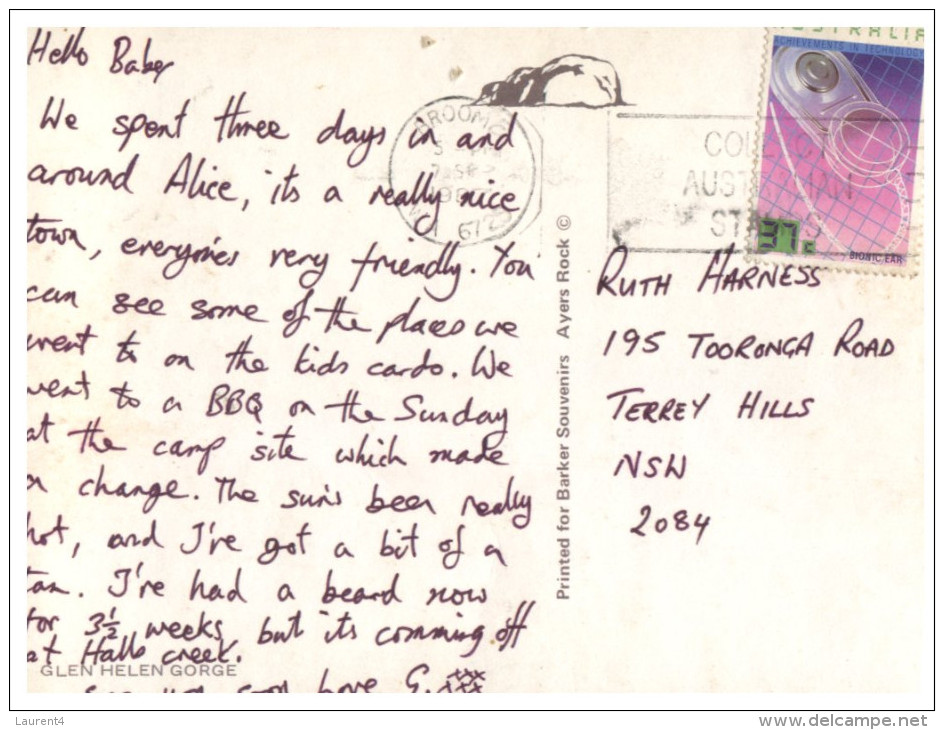 Hello Baker
We spent three days in and
around Alice, its a really nice
town, everyones very friendly. You
can see some of the places we
went to on the kids cards. We
went to a BBQ on the Sunday
at the camp site which made
a change. The suns been really
hot, and I've got a bit of a
tan. I've had a beard now
for 3½ weeks, but its comming off
at Halls creek.
GLEN HELEN GORGE
See you soon love G. xxx
Printed for Barker Souvenirs Ayers Rock ©
AUSTRALIA
ACHIEVEMENTS IN TECHNOLOGY
37c
BIONIC EAR
6725
AUSTRALIAN
STAMPS
RUTH HARNESS
195 TOORONGA ROAD
TERREY HILLS
NSW
2084
Laurent4
www.delcampe.net